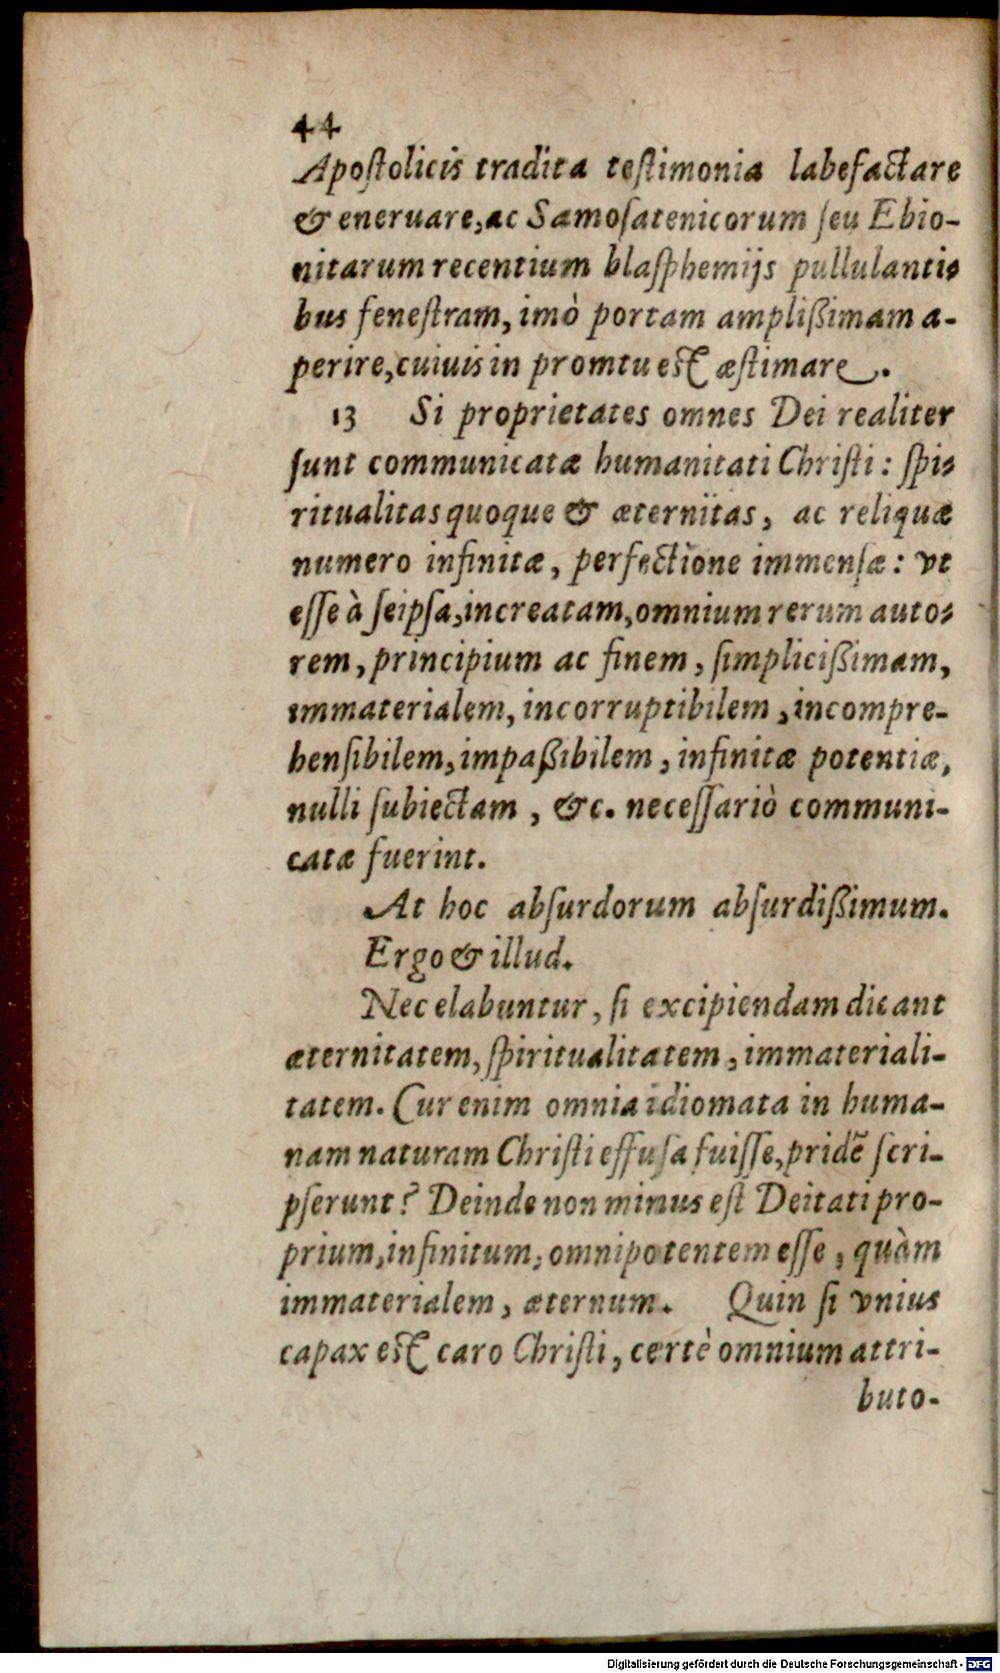 44
Apoſtolicis tradita teſtimonia labefactare
& eneruare, ac Samoſatenicorum ſeu Ebio-
nitarum recentium blaſphemijs pullulanti-
bus feneſtram, imò portam ampliſsimam a-
perire, cuiuis in promtu est æſtimare.
13 Si proprietates omnes Dei realiter
ſunt communicatæ humanitati Chriſti: ſpi-
ritualitas quoque & æternitas, ac reliquæ
numero infinitæ, perfectione immenſæ: vt
eſſe à ſeipſa, increatam, omnium rerum auto-
rem, principium ac finem, ſimpliciſsimam,
immaterialem, incorruptibilem, incompre-
henſibilem, impaſsibilem, infinitæ potentiæ,
nulli ſubiectam, &c. neceſſariò communi-
catæ fuerint.
At hoc abſurdorum abſurdiſsimum.
Ergo & illud.
Nec elabuntur, ſi excipiendam dicant
æternitatem, ſpiritualitatem, immateriali-
tatem. Cur enim omnia idiomata in huma-
nam naturam Chriſti effuſa fuiſſe, pridẽ ſcri-
pſerunt? Deinde non minus eſt Deitati pro-
prium, infinitum, omnipotentem eſſe, quàm
immaterialem, æternum. Quin ſi vnius
capax est caro Chriſti, certè omnium attri-
buto-
Digitalisierung gefördert durch die Deutsche Forschungsgemeinschaft - DFG